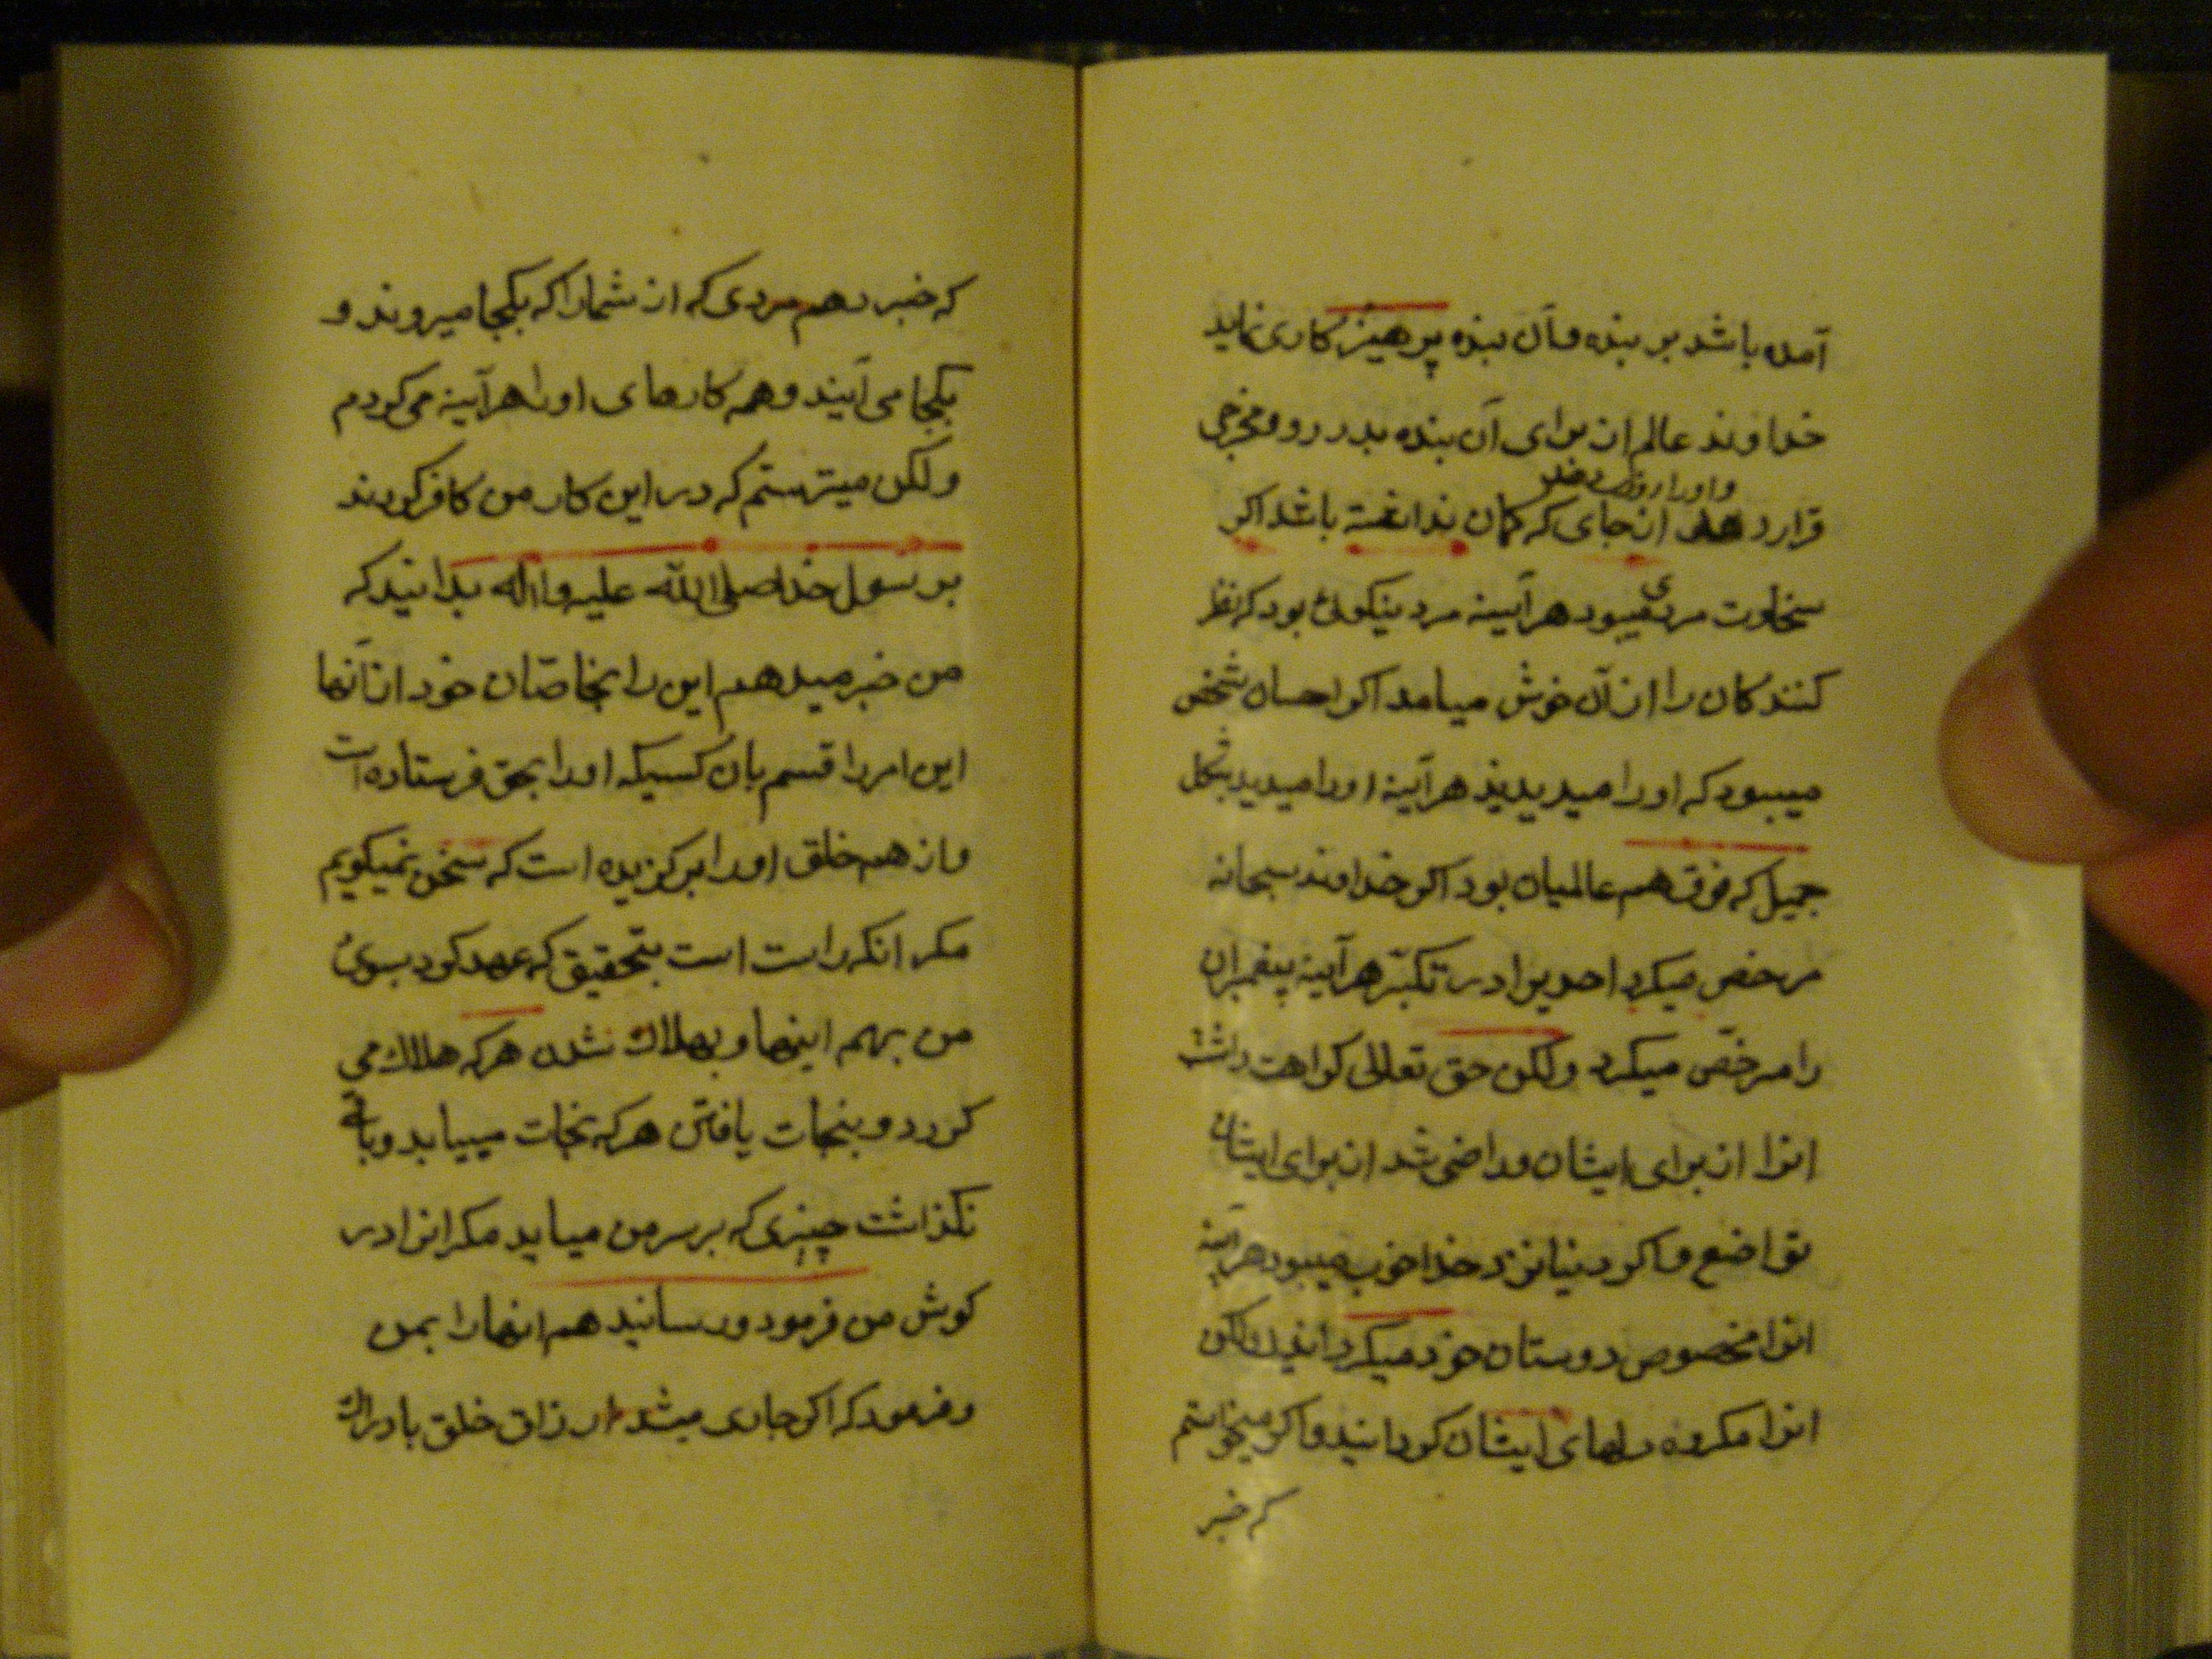 آمده باشد بر بنده و آن بنده پرهیزکاری نماید
خداوند عالم از برای آن بنده بدر رو و مخرجی
و او را روزی دهد
قرار دهد از جای که کمان نداشته باشد اکر
سخاوت مردی میبود هرآیینه مرد نیکوئی بود که نظر
کنندکان را از آن خوش میامد اکر احسان شخصی
میبود که او را میدیدند هرآیینه او را میدیدید بشکل
جمیل که فوق همه عالمیان بود اکر خداوند سبحانه
مرخص میکرد احدیرا در تکبّر هرآیینه پیغمبران
را مرخص میکرد ولکن حق تعالی کراهت داشت
انرا از برای ایشان و راضی شد از برای ایشان
تواضع و اکر دنیا نزد خدا خوب میبود هرآینه
انرا مخصوص دوستان خود میکردانید ولکن
انرا مکروه دلهای ایشان کردانید و اکر میخواستم
که خبر
که خبر دهم مردی که از شما را که بکجا میروند و
بکجا می آیند و همه کارهای او را هرآینه می کردم
ولکن میترستم که در این کار من کافر کردند
برسول خدا صلی الله علیه واله بدانید که
من خبر میدهم این را بخاصّان خود از آنها
این امر را قسم بان کسیکه او را بحق فرستاده است
و از همه خلق او را برکزیده است که سخن نمیکویم
مکر انکه راست است بتحقیق که عهد کرد بسوی
من بهمه اینها و بهلاک شدن هرکه هلاک می
کردد و بنجات یافتن هرکه نجات مییابد و باقی
نکذاشت چیزی که بر سر من میاید مکر انرا در
کوش من فرمود و رسانید همه انها را بمن
و فرمود که اکر جاری میشد ارزاق خلق بادراک